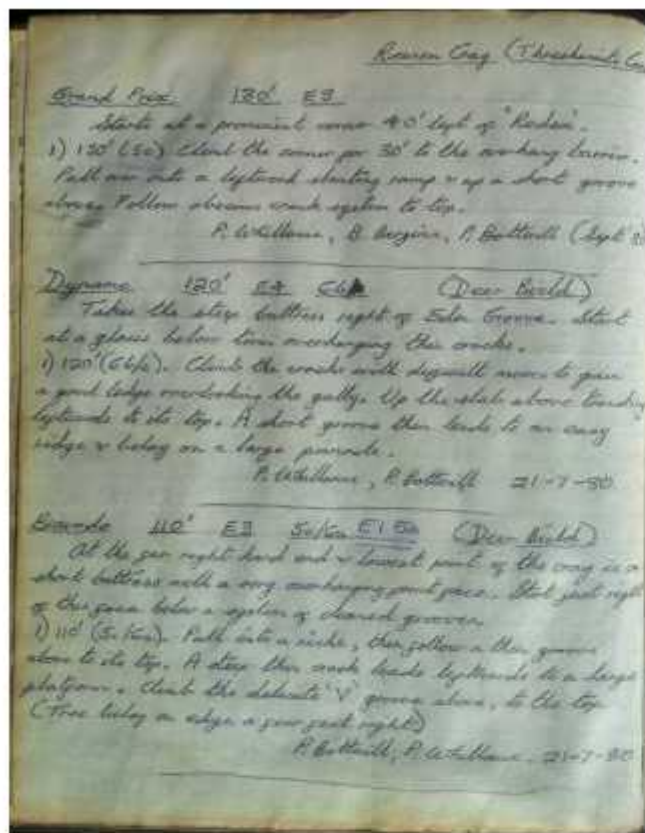 Raven Crag (Threshwaite
Grand Prix. 130' E3
Starts at a prominent corner 40' left of "Redex".
1) 130' (5c) Climb the corner for 30' to the overhang barrier.
Pull over onto a leftward slanting ramp & up a short groove
above. Follow obvious crack system to top.
P. Whillance, P. Botterill (Sept 80
Dynamo 120' E4 (Deer Bield)
Takes the steep buttress right of Eden Groove. Start
at a below twin overhanging thin cracks.
1) 120' (6b/c). Climb the cracks with difficult moves to gain
a good ledge overlooking the gully. Up the slab above trending
leftwards to its top. A short groove then leads to an easy
ridge & belay on a large pinnacle.
P. Whillance, P. Botterill 21-7-80
110' E3 E1 5b (Deer Bield)
At the far right hand end & lowest point of the crag is a
short buttress with a very overhanging front face. Start just right
of this face below a system of grooves.
1) 110' Pull into a niche, then follow a thin groove
above to its top. A steep thin crack leads leftwards to a large
platform. Climb the delicate 'V' groove above, to the top
(Tree belay on edge a few feet right)
P. Botterill, P. Whillance. 21-7-80